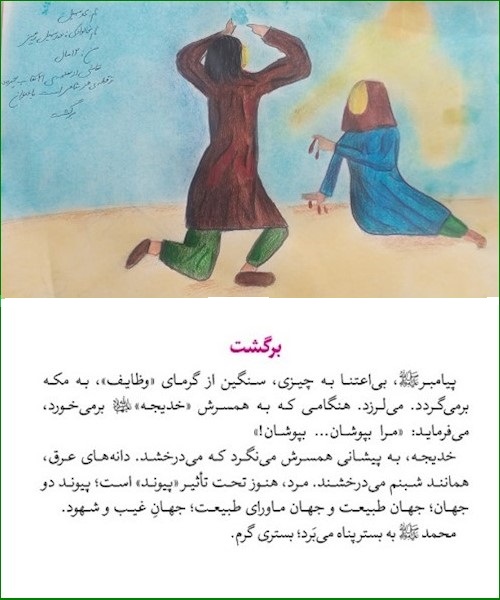 برگشت
پیامبرﷺ، بی‌اعتنا به چیزی، سنگین از گرمای «وظایف»، به مکه
برمی‌گردد. می‌لرزد. هنگامی که به همسرش «خدیجه» برمی‌خورد،
می‌فرماید: «مرا بپوشان... بپوشان!»
خدیجه، به پیشانی همسرش می‌نگرد که می‌درخشد. دانه‌های عرق،
همانند شبنم می‌درخشند. مرد، هنوز تحت تأثیر «پیوند» است؛ پیوند دو
جهان؛ جهان طبیعت و جهان ماورای طبیعت؛ جهانِ غیب و شهود.
محمدﷺ به بستر پناه می‌بَرد؛ بستری گرم.